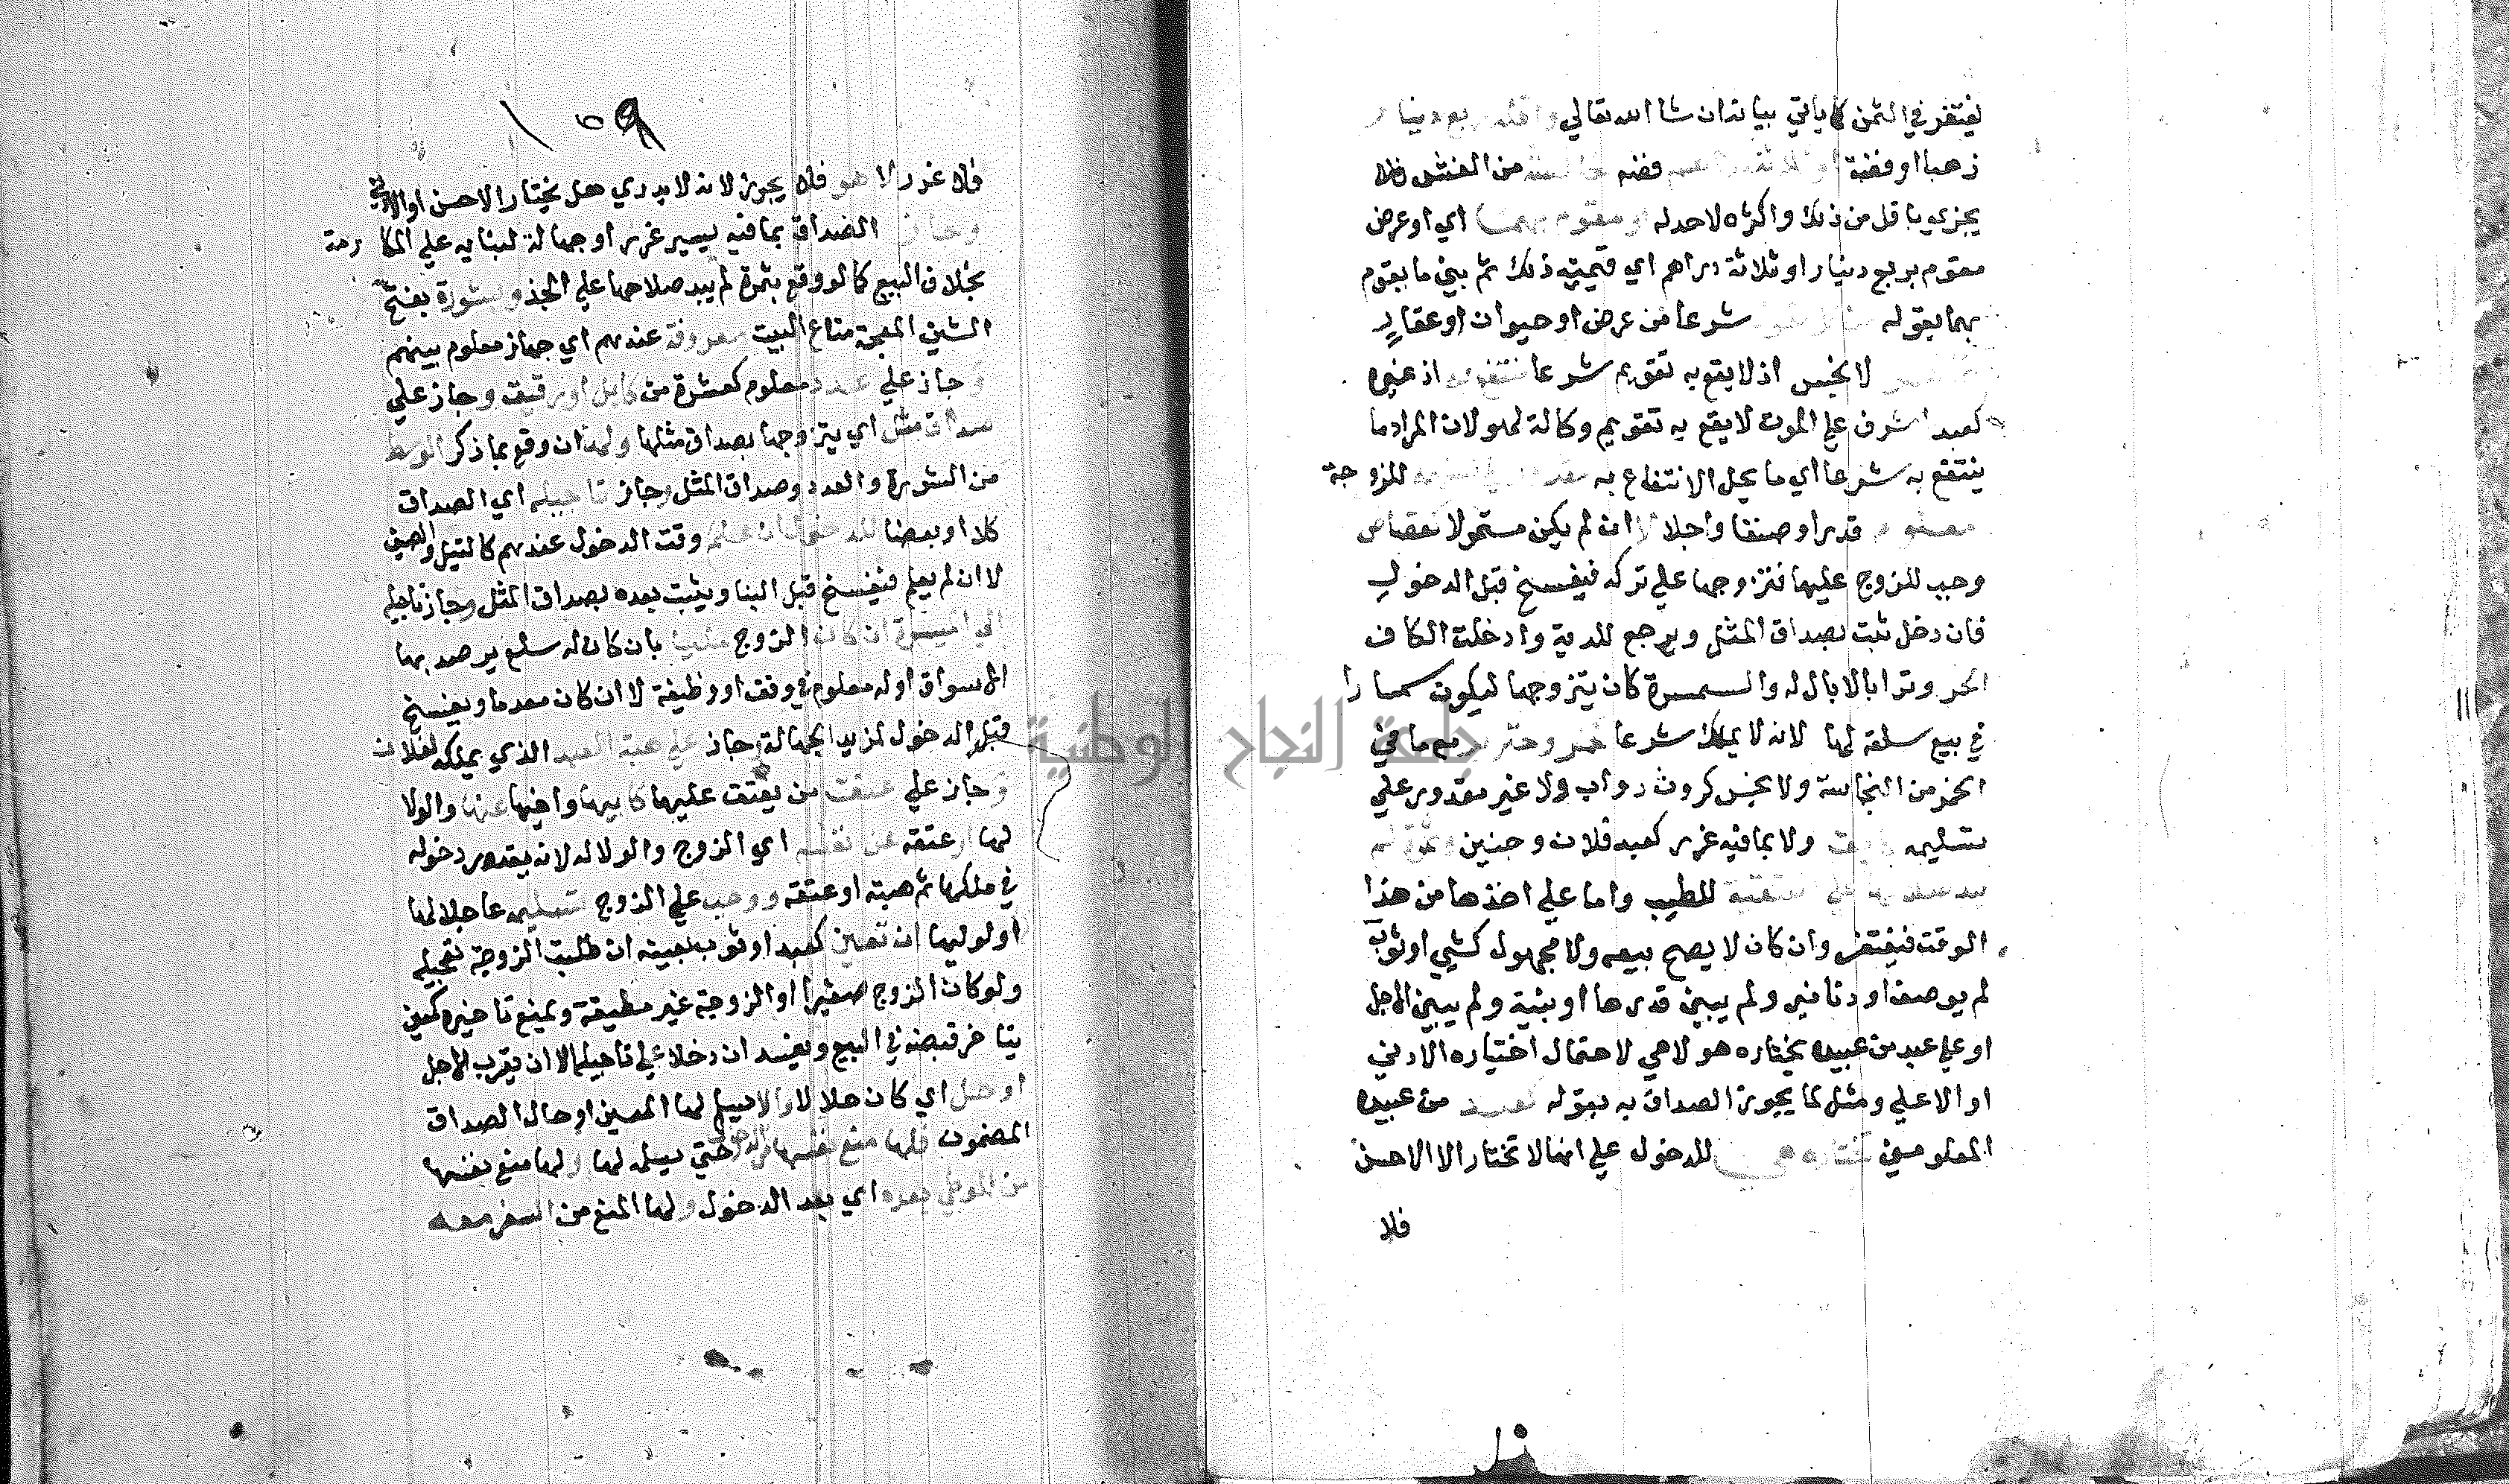 يغتفر في الثمن كما ياتي بيانه ان شا الله تعالي واقله ربع دينار
ذهبا او فضة او ثلاثة دراهم فضة خالصة من الغش فلا
يجزي باقل من ذلك واكثره لا حد له او مقوم بهما اي او عرض
مقوم بربع دينار او ثلاثة دراهم اي قيمته ذلك ثم بين ما يقوم
بهما بقوله شرعا من عرض او حيوان او عقار
لا نجس اذ لا يقع به تقويم شرعا منتفع به اذ غيره
كعبد اشرف علي الموت لا يقع به تقويم وكالة لهو لان المراد ما
ينتفع به شرعا اي ما يحل الانتفاع به مقدور علي تسليمه للزوجة
معلوم قدرا وصنفا واجلا لا ان لم يكن متمولا كقصاص
وجب للزوج عليها فتزوجها علي تركه فيفسخ قبل الدخول
فان دخل ثبت بصداق المثل ويرجع للدية وادخلت الكاف
الحر وترابا لا بال له والسمسرة كان يتزوجها ليكون سمسارا
في بيع سلعة لها لانه لا يملك شرعا خمر وخنزير مع ما في
الخمر من النجاسة ولا نجس كروث دواب ولا غير مقدور علي
تسليمه كابق ولا بما فيه غرر كعبد فلان وجنين وثمرة لم
يبد صلاحها علي التبقية للطيب واما علي اخذها من هذا
الوقت فيغتفر وان كان لا يصح بيعه ولا مجهول كشي او ثوب
لم يوصف او دنانير ولم يبين قدرها او بينه ولم يبين الاجل
او علي عبد من عبيده يختاره هو لا هي لاحتمال اختياره الادني
او الاعلي ومثل لما يجوز الصداق به بقوله كعبد من عبيده
المعلومين تختاره هي للدخول علي انها لا تختار الا الاحسن
فلا
١٥٩
فلا غرر لا هو فلا يجوز لانه لا يدري هل يختار الاحسن او الادني
وجاز الصداق بما فيه يسير غرر او جهالة لبنايه علي المكارمة
بخلاف البيع كما لو وقع بثمرة لم يبد صلاحها علي الجذ وبشورة بفتح
الشين المعجمة متاع البيت معروفة عندهم اي جهاز معلوم بينهم
وجاز علي عدد معلوم كعشرة من كابل او رقيق وجاز علي
صداق مثل اي يتزوجها بصداق مثلها ولها ان وقع بما ذكر الوسط
من الشورة والعدد وصداق المثل وجاز تاجيله اي الصداق
كلا او بعضا للدخول ان علم وقت الدخول عندهم كالنيل والصيف
لا ان لم يعلم فيفسخ قبل البنا ويثبت بعده بصداق المثل وجاز تاجيله
الي الميسرة ان كان الزوج مليا بان كان له سلع يرصد بها
الاسواق او له معلوم في وقف او وظيفة لا ان كان معدما ويفسخ
قبل الدخول لمزيد الجهالة وجاز علي هبة العبد الذي يملكه لفلان
وجاز علي عتق من يعتق عليها كابيها واخيها عنها والولا
لها او عتقه عن نفسه اي الزوج والولا له لانه يقدر دخوله
في ملكها ثم هبته او عتقه ووجب علي الزوج تسليمه عاجلا لها
او لوليها ان تعين كعبد او ثوب بعينه ان طلبت الزوجة تعجيله
ولو كان الزوج صغيرا او الزوجة غير مطيقة ويمنع تاخيره كمعين
يتاخر قبضه في البيع ويفسد ان دخلا علي تاجيله الا ان يقرب الاجل
او حل اي كان حالا والا يسلم لها المعين او حال الصداق
المضمون فلها منع نفسها من الدخول حتي يسلمه لها ولها منع نفسها
من الوطي بعده اي بعد الدخول ولها المنع من السفر معه
جامعة النجاح الوطنية